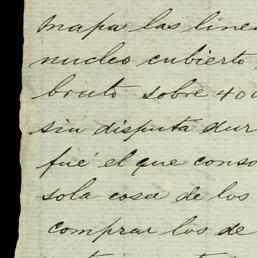 mapa las line
nucleo cubierto
bruto sobre 400
sin disputa dur
fué el que conso
sola cosa de los
comprar los de